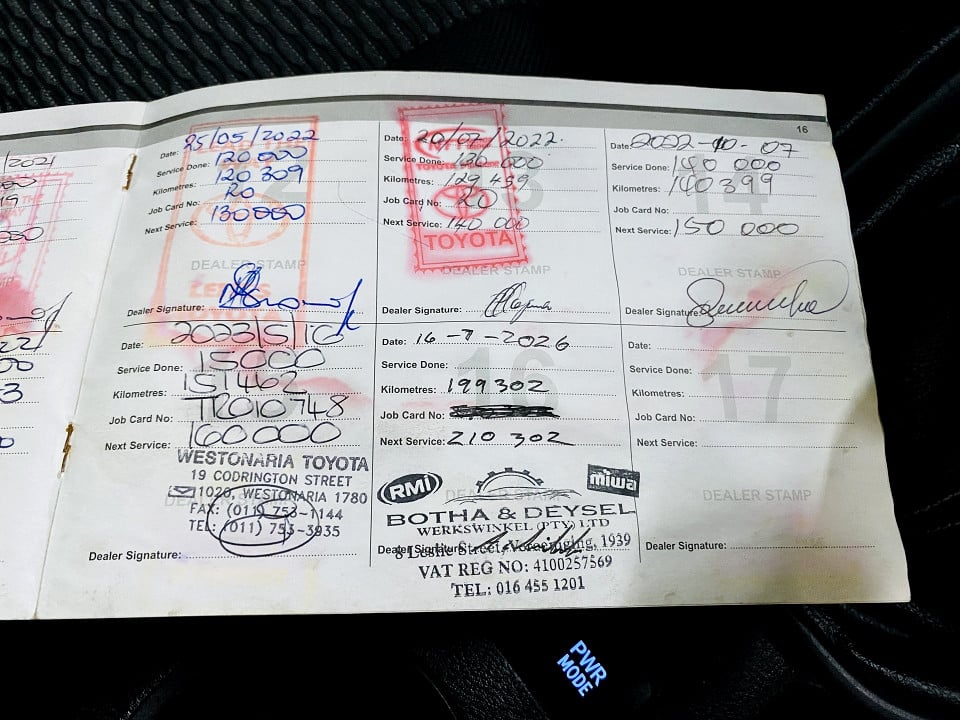 16
Date: 25/05/2022
Service Done: 120 000
Kilometres: 120 309
Job Card No: RO
Next Service: 130000
DEALER STAMP
Dealer Signature:
Date: 20/07/2022.
Service Done: 130 000
Kilometres: 129 459
Job Card No: 20
Next Service: 140 000
TOYOTA
DEALER STAMP
Dealer Signature:
14
Date: 2022-10-07
Service Done: 140 000
Kilometres: 140 399
Job Card No:
Next Service: 150 000
DEALER STAMP
Dealer Signature:
Date: 2023/5/16
Service Done: 15000
Kilometres: 151462
Job Card No: TR010748
Next Service: 160000
WESTONARIA TOYOTA
19 CODRINGTON STREET
1020, WESTONARIA 1780
FAX: (011) 753-1144
TEL: (011) 753-3935
Dealer Signature:
16
Date: 16-7-2026
Service Done:
Kilometres: 199 302
Job Card No:
Next Service: 210 302
RMI
miwa
DEALER STAMP
BOTHA & DEYSEL
WERKSWINKEL (PTY) LTD
Dealer Signature:
8 Leslie Street, Vereeniging, 1939
VAT REG NO: 4100257569
TEL: 016 455 1201
17
Date:
Service Done:
Kilometres:
Job Card No:
Next Service:
DEALER STAMP
Dealer Signature:
PWR
MODE